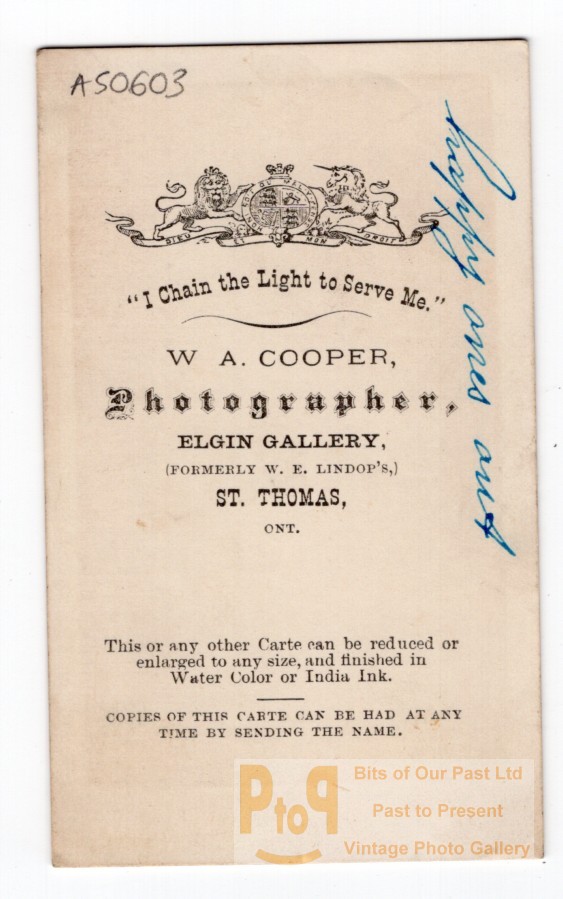 A50603
DIEU ET MON DROIT
"I Chain the Light to Serve Me."
W A. COOPER,
Photographer,
ELGIN GALLERY,
(FORMERLY W. E. LINDOP'S,)
ST. THOMAS,
ONT.
This or any other Carte can be reduced or
enlarged to any size, and finished in
Water Color or India Ink.
COPIES OF THIS CARTE CAN BE HAD AT ANY
TIME BY SENDING THE NAME.
happy ones
PtoP
Bits of Our Past Ltd
Past to Present
Vintage Photo Gallery